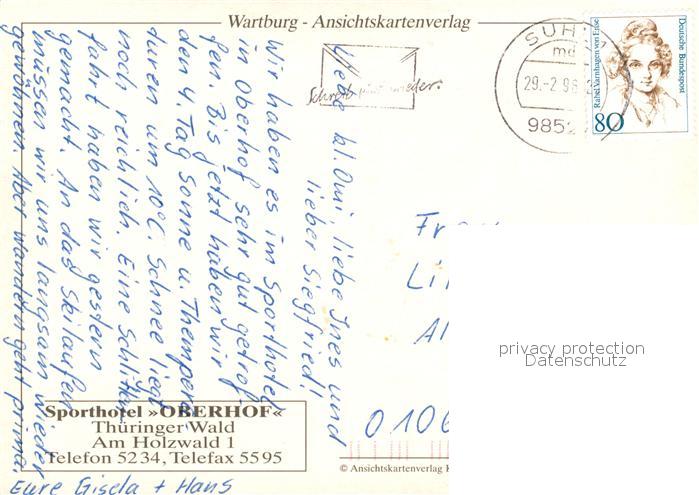 Wartburg - Ansichtskartenverlag
Liebe kl. Omi, liebe Ines und
lieber Siegfried!
Wir haben es im Sporthotel
in Oberhof sehr gut getrof-
fen. Bis jetzt haben wir
den 4. Tag Sonne u. Thempera-
turen um 10°C. Schnee liegt
noch reichlich. Eine Schlitten
fahrt haben wir gestern
gemacht. An das Skilaufen
müssen wir uns langsam wieder
gewöhnen. Aber wandern geht prima.
Eure Gisela + Hans
Schreib mal wieder.
SUHL 1
29.-2.96
9852
Rahel Varnhagen von Ense
Deutsche Bundespost
80
Fr
Li
Al
privacy protection
Datenschutz
0106
Sporthotel »OBERHOF«
Thüringer Wald
Am Holzwald 1
Telefon 5234, Telefax 5595
© Ansichtskartenverlag